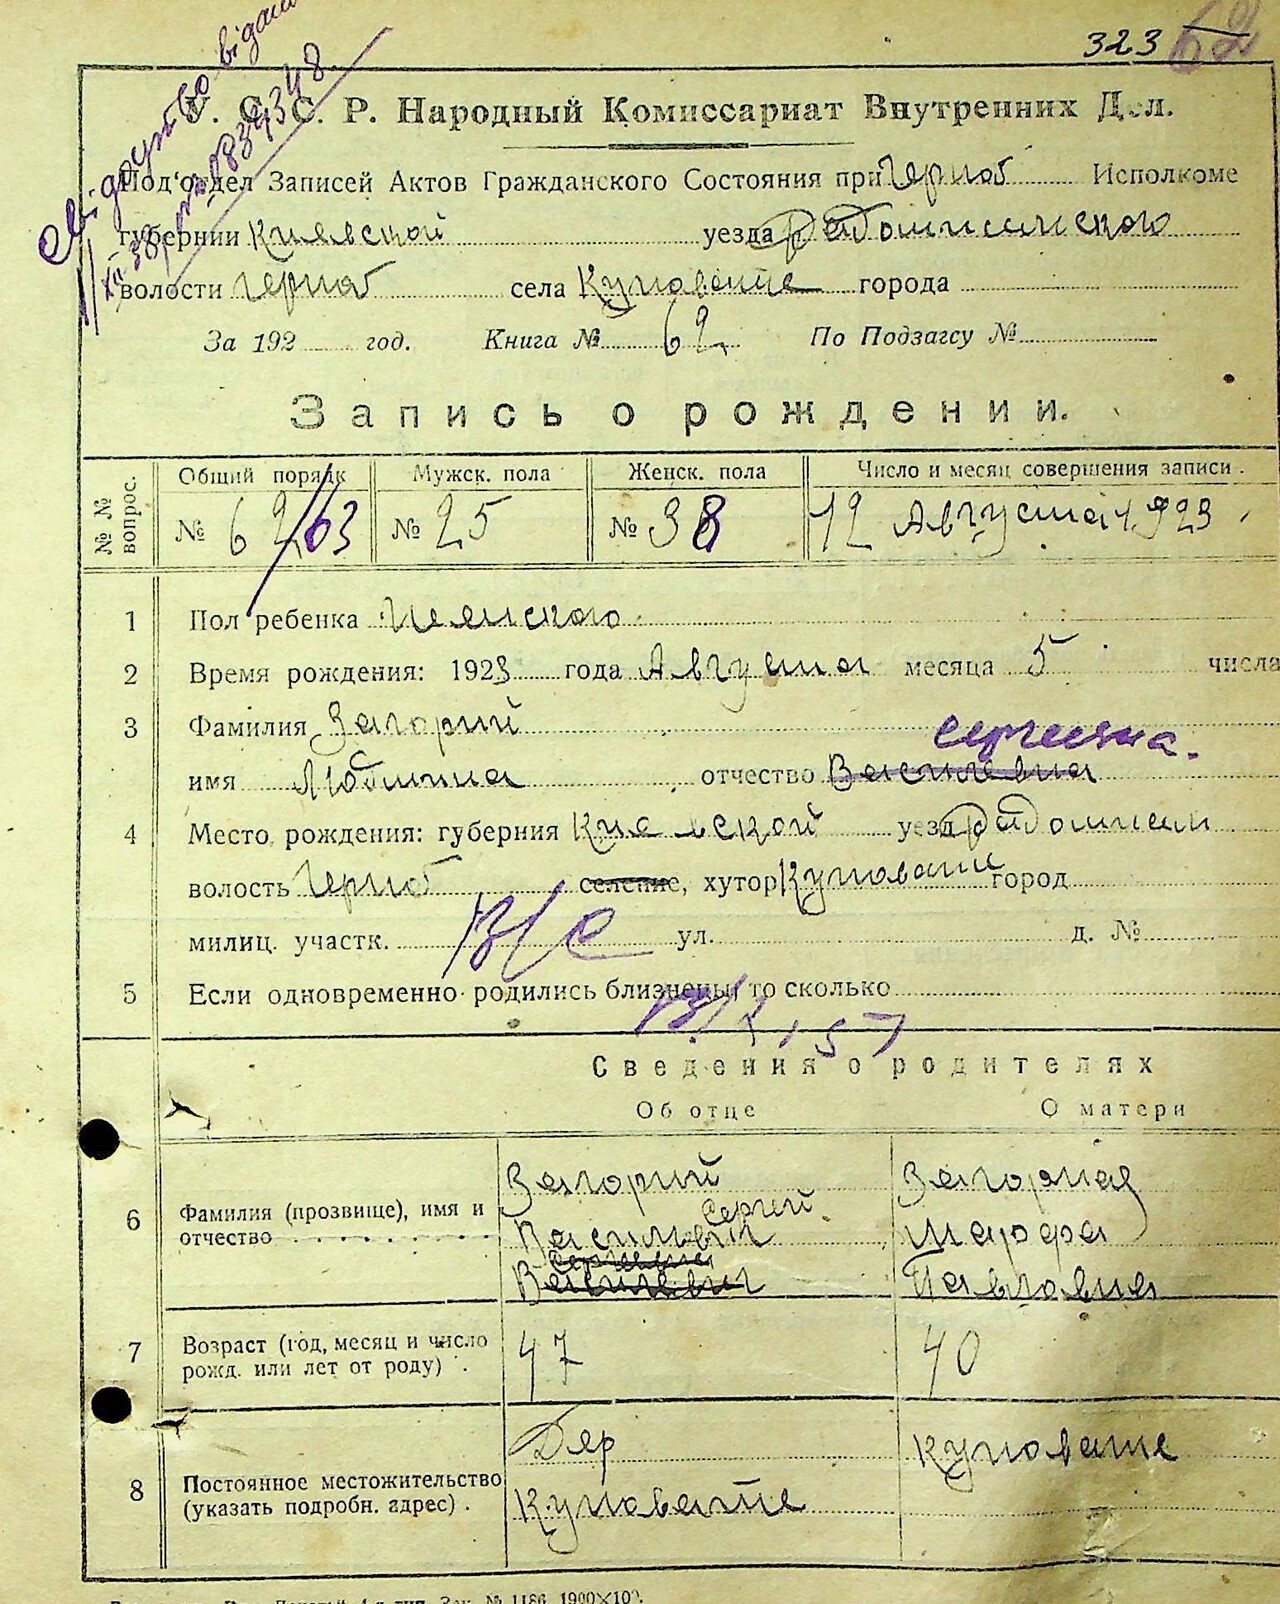 323 62
Свідоцтво видано
У. С. С. Р. Народный Комиссариат Внутренних Дел.
Под'отдел Записей Актов Гражданского Состояния при Черноб Исполкоме
губернии Киевской уезда Радомысльского
волости Черноб села Куповатое города
За 192 год. Книга № 62 По Подзагсу №
Запись о рождении.
№ № вопрос. Общий порядк Мужск. пола Женск. пола Число и месяц совершения записи.
№ 62/63 № 25 № 38 12 Августа 1923
1 Пол ребенка Женского
2 Время рождения: 1923 года Августа месяца 5 числа
3 Фамилия Загорий
Сергеевна.
имя отчество Васильевна
4 Место рождения: губерния Киевской уезд Радомысл
волость Черноб селение, хутор Куповати город
милиц. участк. ул. д. №
5 Если одновременно родились близнецы, то сколько
Сведения о родителях
Об отце О матери
Загорий Загорная
6 Фамилия (прозвище), имя и Сергей
отчество Васильевич Марфа
Васильевич Павловна
7 Возраст (год, месяц и число 47 40
рожд. или лет от роду)
Дер Куповатое
8 Постоянное местожительство
(указать подробн. адрес). Куповатое
Зак. № 1186.